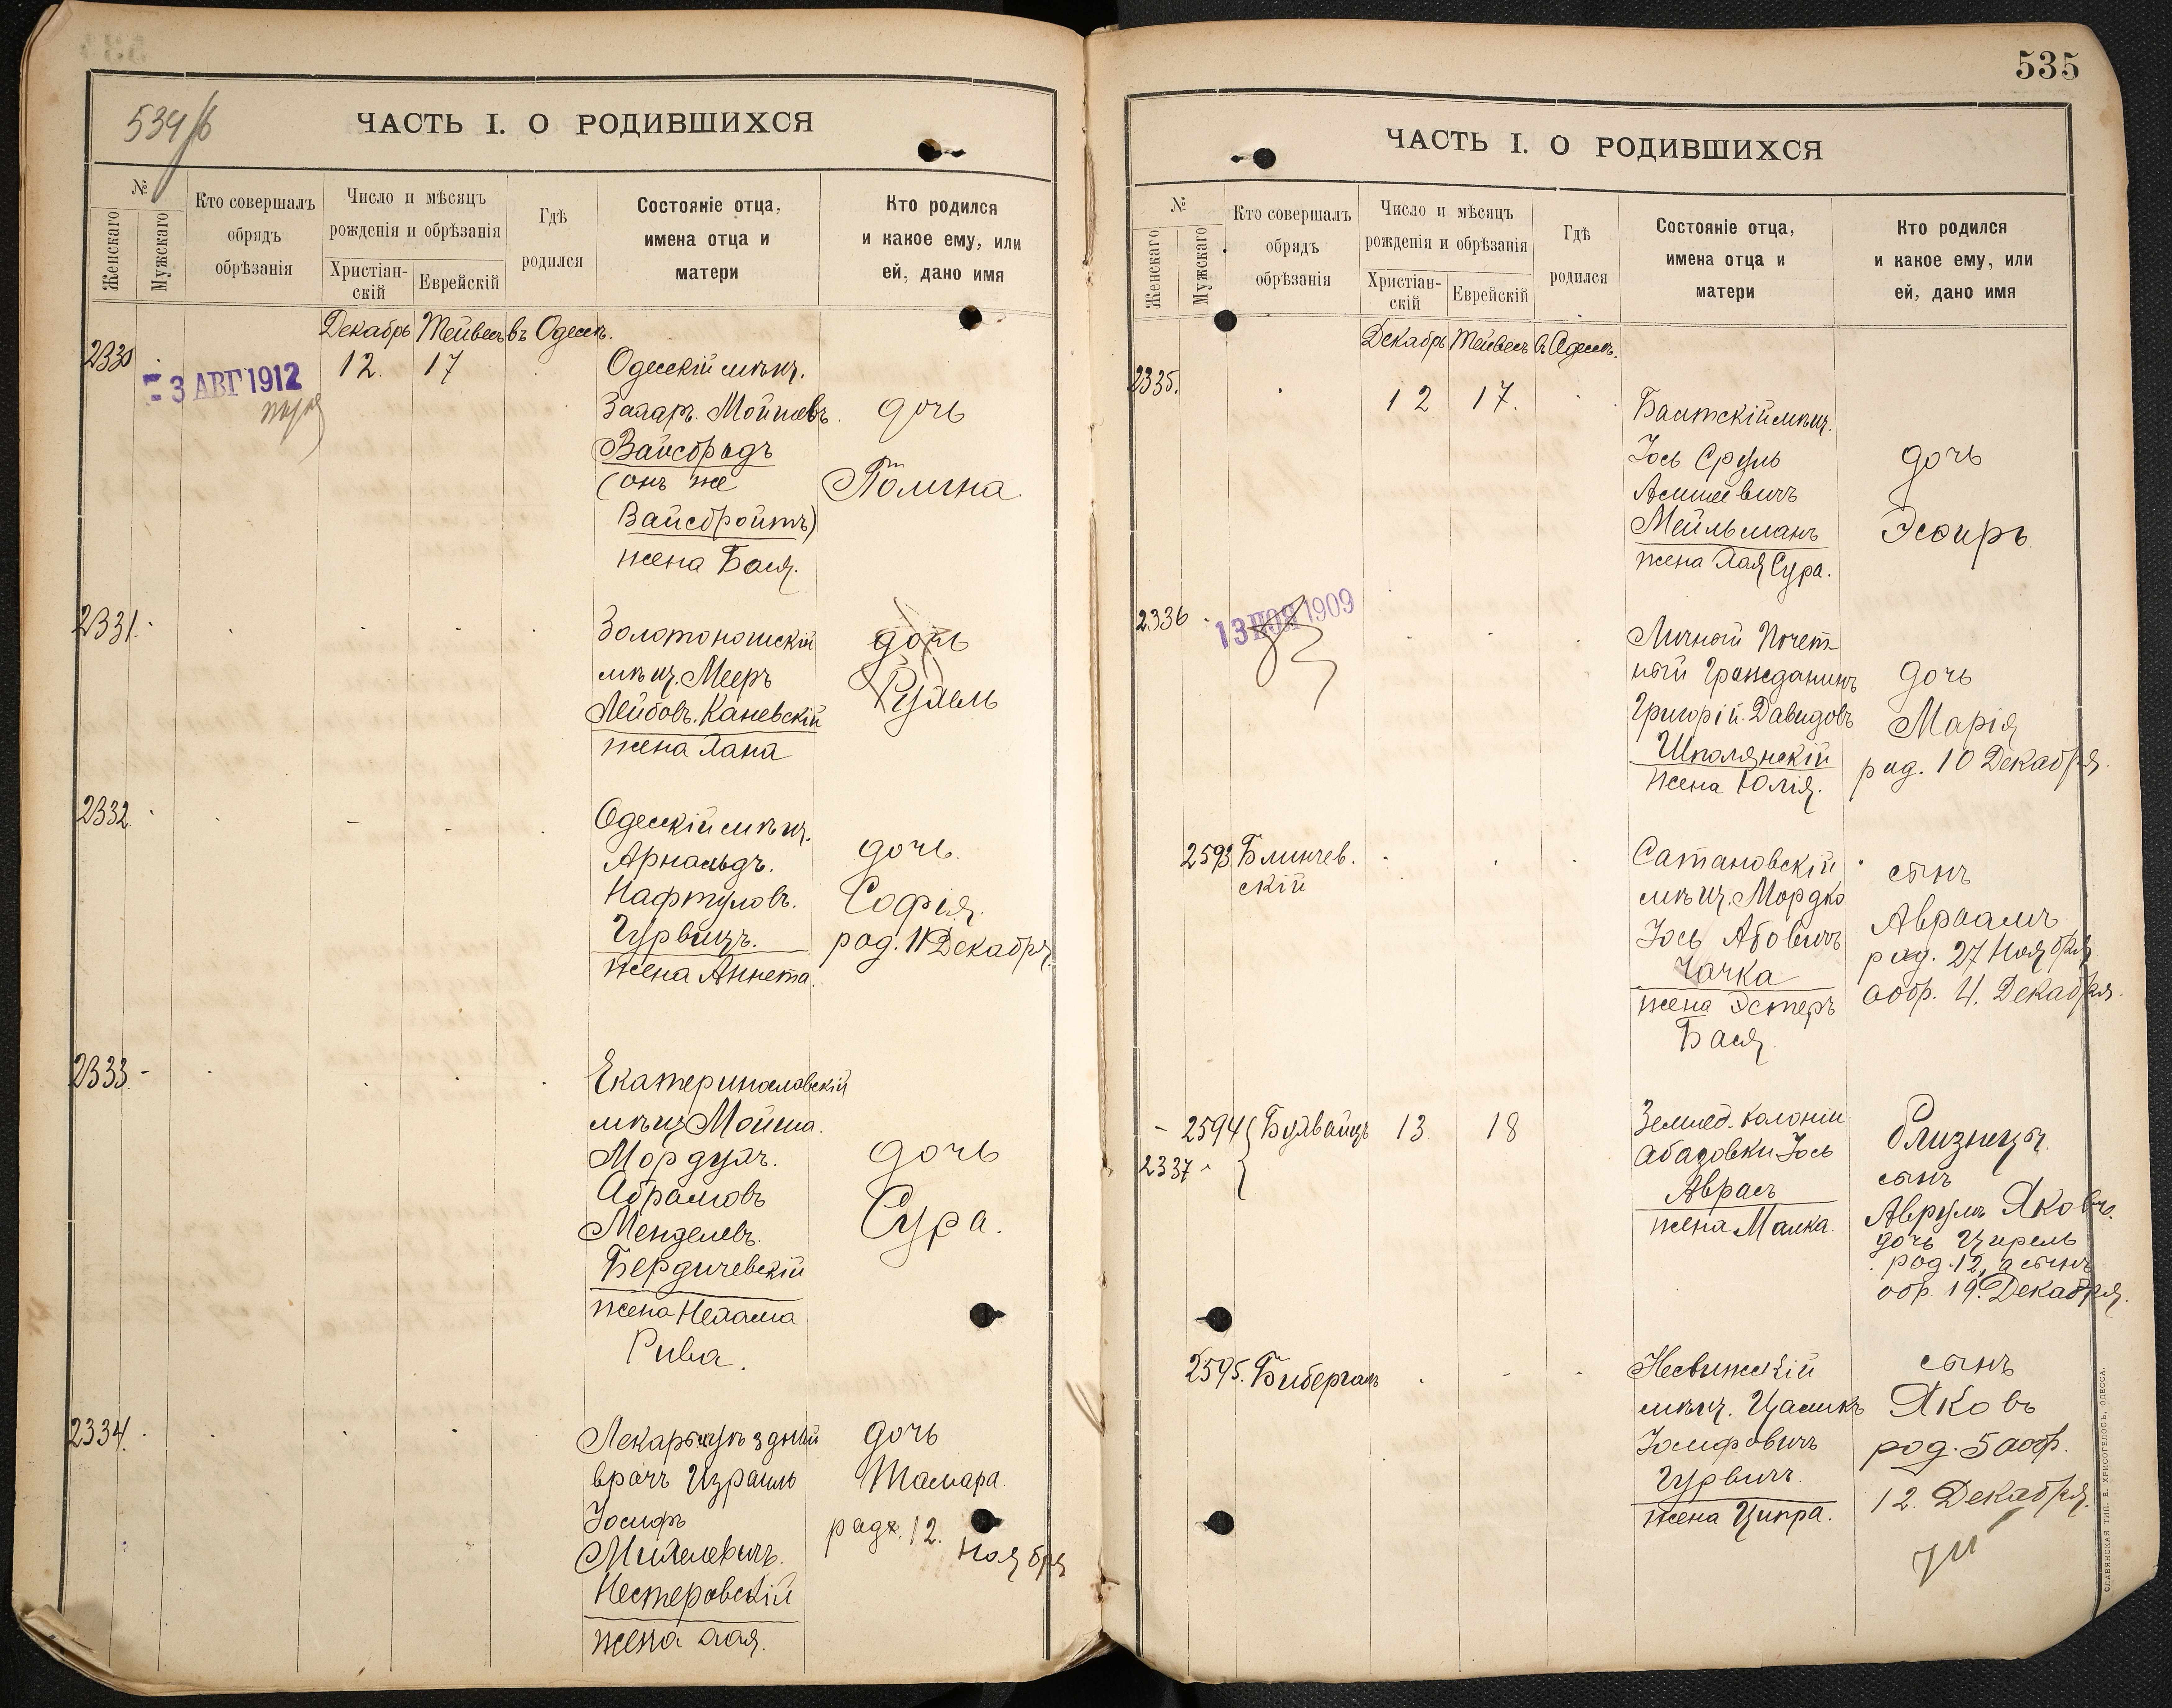 534/б
ЧАСТЬ I. О РОДИВШИХСЯ
№
Женскаго
Мужскаго
Кто совершалъ
обрядъ
обрѣзанія
Число и мѣсяцъ
рожденія и обрѣзанія
Христіан-
скій
Еврейскій
Гдѣ
родился
Состояніе отца,
имена отца и
матери
Кто родился
и какое ему, или
ей, дано имя
Декабрь Тейвесъ въ Одессѣ.
2330
- 3 АВГ 1912
12. 17
Одесскій мѣщ.
Захар. Мойшовъ.
Вайсбрадъ
(онъ же
Вайсбройтъ)
жена Бася.
дочь
Полина.
2331.
Золотоношскій
мѣщ. Мееръ
Лейбовъ. Каневскій
жена Хана
дочь
Рухель
2332
Одесскій мѣщ.
Арнольдъ.
Нафтуловъ.
Гурвицъ.
жена Аннета.
дочь.
Софія.
род. 11 Декабря.
2333.
Екатеринославскій
мѣщ Мойша.
Мордухъ.
Абрамовъ
Менделевъ.
Бердичевскій
жена Нехама
Рива.
дочь
Сура.
2334.
Лекарь уѣздный
врачъ Израиль
Іосифъ
Михелевичъ.
Нестеровскій
жена Хая.
дочь
Тамара
род. 12.
Ноября
535
ЧАСТЬ I. О РОДИВШИХСЯ
№
Женскаго
Мужскаго
Кто совершалъ
обрядъ
обрѣзанія
Число и мѣсяцъ
рожденія и обрѣзанія
Христіан-
скій
Еврейскій
Гдѣ
родился
Состояніе отца,
имена отца и
матери
Кто родился
и какое ему, или
ей, дано имя
Декабрь Тейвесъ въ Одессѣ.
2335.
12 17.
Балтскій мѣщ.
Іось Сруль
Мейльманъ
жена Хая Сура.
дочь
Эсѳирь.
2336
13 НОЯ 1909
Личный Почет-
ный Гражданинъ
Григорій. Давидовъ
Шполянскій
жена Юлія.
дочь
Марія
род. 10 Декабря.
2593 Блинчев.
скій
Сатановскій
мѣщ. Мордко
Іось Абовичъ
Чачка
жена Эстеръ
Бася.
сынъ
Авраамъ
род. 27 Ноября
аобр. 4. Декабря.
2594 Бухвайцъ 13. 18
2337
Землед. колоніи
Абазовки Іось
Аврасъ
жена Малка.
близнецы.
сынъ
Аврумъ Яковъ.
дочь Цирель
род. 12, а сынъ
обр. 19. Декабря.
2595. Бибергалъ
Несвижскій
мѣщ. Цаликъ
Іосифовичъ
Гурвичъ.
жена Ципра.
сынъ
Яковъ
род. 5 аобр.
12. Декабря.
СЛАВЯНСКАЯ ТИП. Е. ХРИСОГЕЛОСЪ, ОДЕССА.